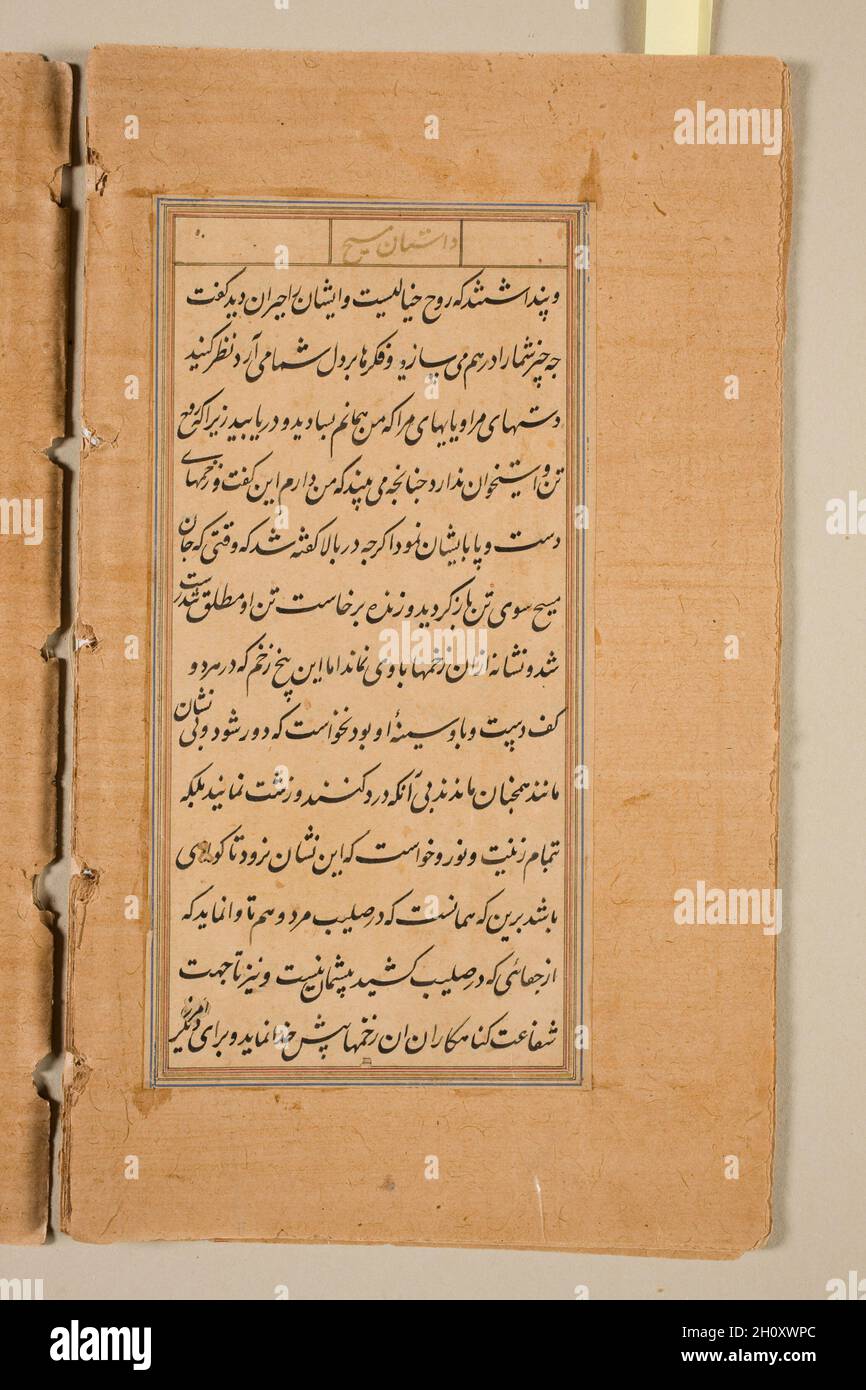 داستان مسیح
و پنداشتند که روح خیالیست و ایشان را حیران دید گفت
چه چیز شما را درهم می سازد و فکرها بر دل شما می آرد نظر کنید
دستهای مرا و پایهای مرا که من همانم بسایید و دریابید زیرا که روح
تن و استخوان ندارد چنانچه می بینید که من دارم این گفت و زخمهای
دست و پا بایشان نمود اگرچه در بالا گفته شد که وقتی که جان
مسیح سوی تن باز گردید و زنده برخاست تن او مطلق تندرست
شد و نشانه از ان زخمها با وی نماند اما این پنج زخم که در هر دو
کف دست و پا و سینهٔ او بود نخواست که دور شود و بی نشان
مانند همچنان ماندند بی آنکه درد کنند و زشت نمایند بلکه
تمام زینت و نور و خواست که این نشان نرود تا گواهی
باشد برین که همانست که در صلیب مرد و هم تا وا نماید که
از جفائی که در صلیب کشید پشیمان نیست و نیز تا جهت
شفاعت گناهکاران ان زخمها پیش خدا نماید و برای
alamy
Image ID: 2H0XWPC
www.alamy.com